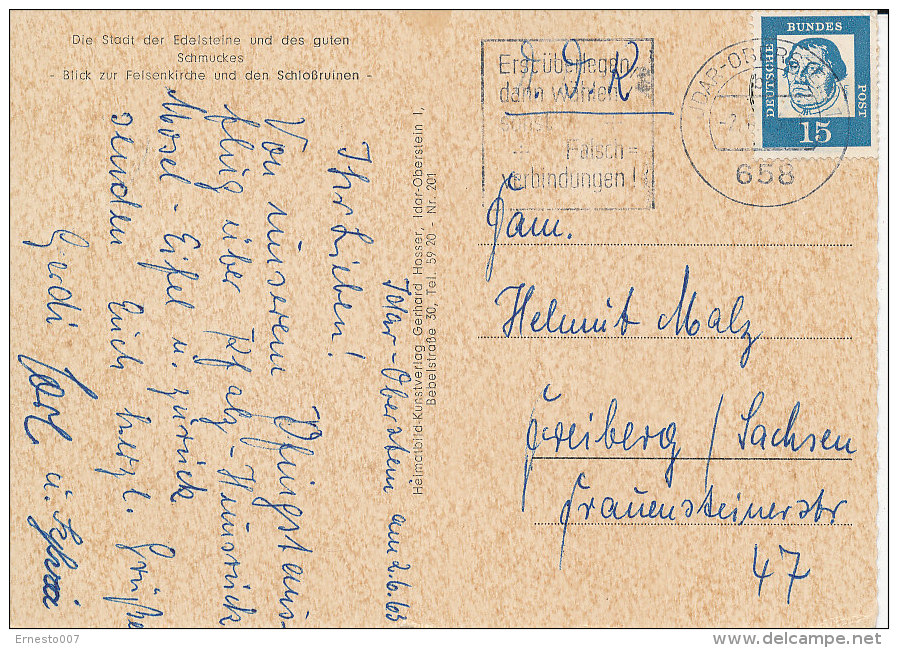 Die Stadt der Edelsteine und des guten
Schmuckes
- Blick zur Felsenkirche und den Schloßruinen -
Idar-Oberstein am 2.6.63
Ihr Lieben!
Von unserem Pfingstaus-
flug über Pfalz-Hunsrück
Mosel - Eifel u. zurück
senden Euch herzl. Grüße
Gerdi u.
Heimatbild-Kunstverlag Gerhard Hosser, Idar-Oberstein 1,
Bebelstraße 30, Tel. 59 20 - Nr. 201
Erst überlegen,
dann wählen
sonst
Falsch=
verbindungen!
IDAR-OBERSTEIN
658
DEUTSCHE
BUNDES
POST
15
Fam.
Helmut Malz
Freiberg / Sachsen
Frauensteinerstr
47
Ernesto007
delcampe.net